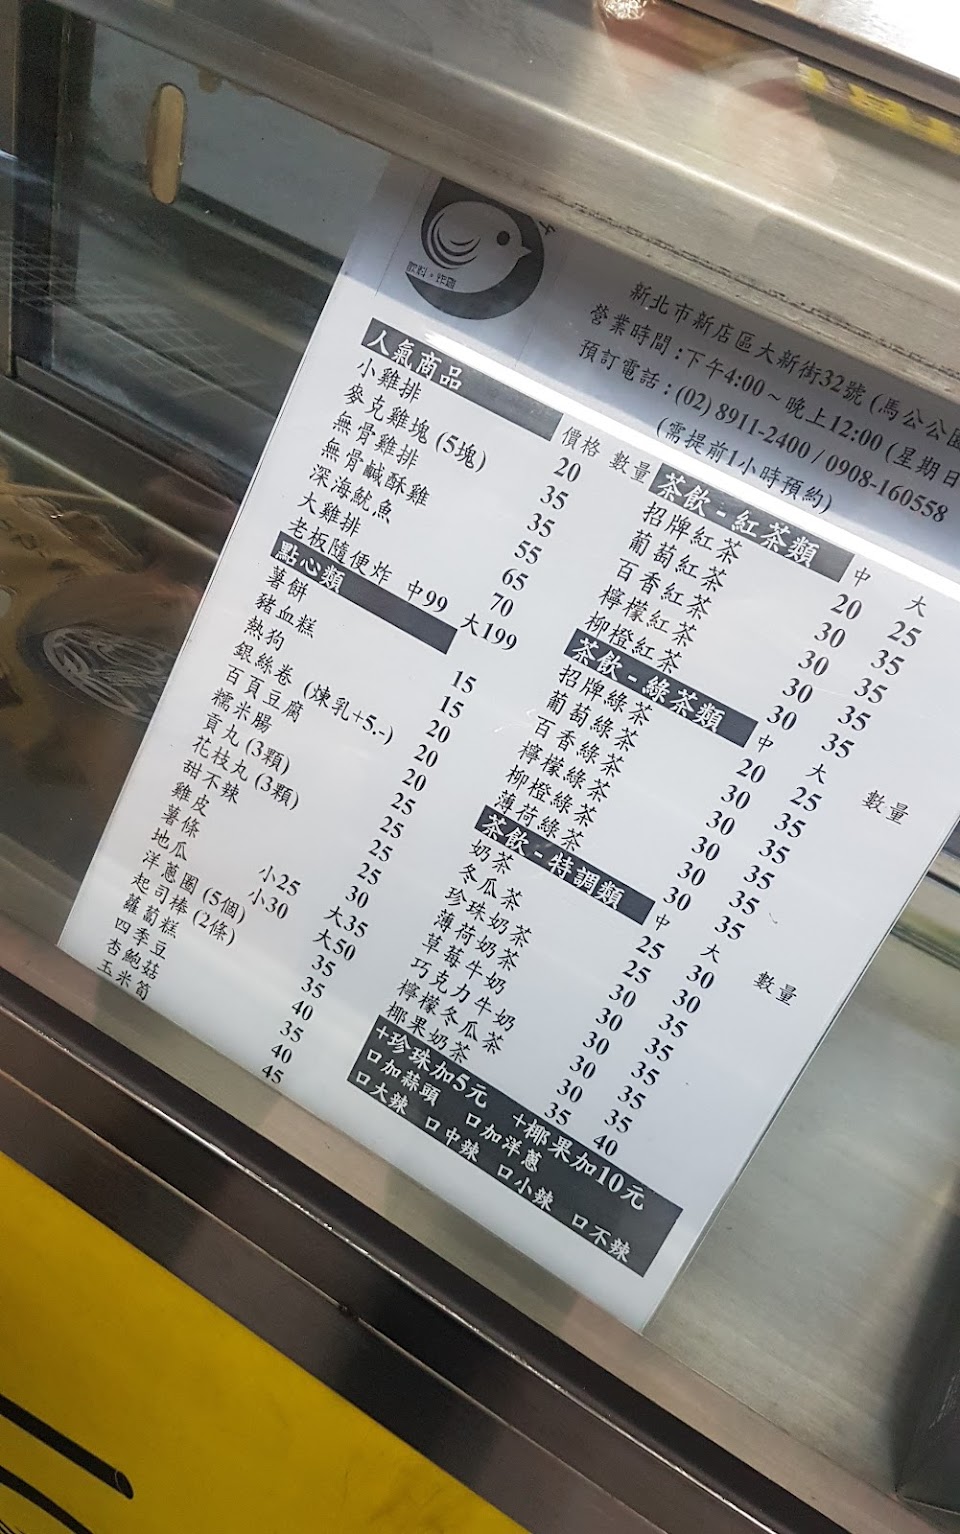 飲料。炸雞
新北市新店區大新街32號 (馬公公園
營業時間：下午4:00 ~ 晚上12:00 (星期日
預訂電話：(02) 8911-2400 / 0908-160558
(需提前1小時預約)
人氣商品 價格 數量
小雞排 20
麥克雞塊 (5塊) 35
無骨雞排 35
無骨鹹酥雞 55
深海魷魚 65
大雞排 70
老板隨便炸 中99 大199
點心類
薯餅 15
豬血糕 15
熱狗 20
銀絲卷 (煉乳+5.-) 20
百頁豆腐 20
糯米腸 25
貢丸 (3顆) 25
花枝丸 (3顆) 25
甜不辣 25
雞皮 30
薯條 小25 大35
地瓜 小30 大50
洋蔥圈 (5個) 35
起司棒 (2條) 35
蘿蔔糕 40
四季豆 35
杏鮑菇 40
玉米筍 45
茶飲 - 紅茶類 中 大
招牌紅茶 20 25
葡萄紅茶 30 35
百香紅茶 30 35
檸檬紅茶 30 35
柳橙紅茶 30 35
茶飲 - 綠茶類 中 大 數量
招牌綠茶 20 25
葡萄綠茶 30 35
百香綠茶 30 35
檸檬綠茶 30 35
柳橙綠茶 30 35
薄荷綠茶 30 35
茶飲 - 特調類 中 大 數量
奶茶 25 30
冬瓜茶 25 30
珍珠奶茶 30 35
薄荷奶茶 30 35
草莓牛奶 30 35
巧克力牛奶 30 35
檸檬冬瓜茶 30 35
椰果奶茶 35 40
+珍珠加5元 +椰果加10元
口加蒜頭 口加洋蔥
口大辣 口中辣 口小辣 口不辣